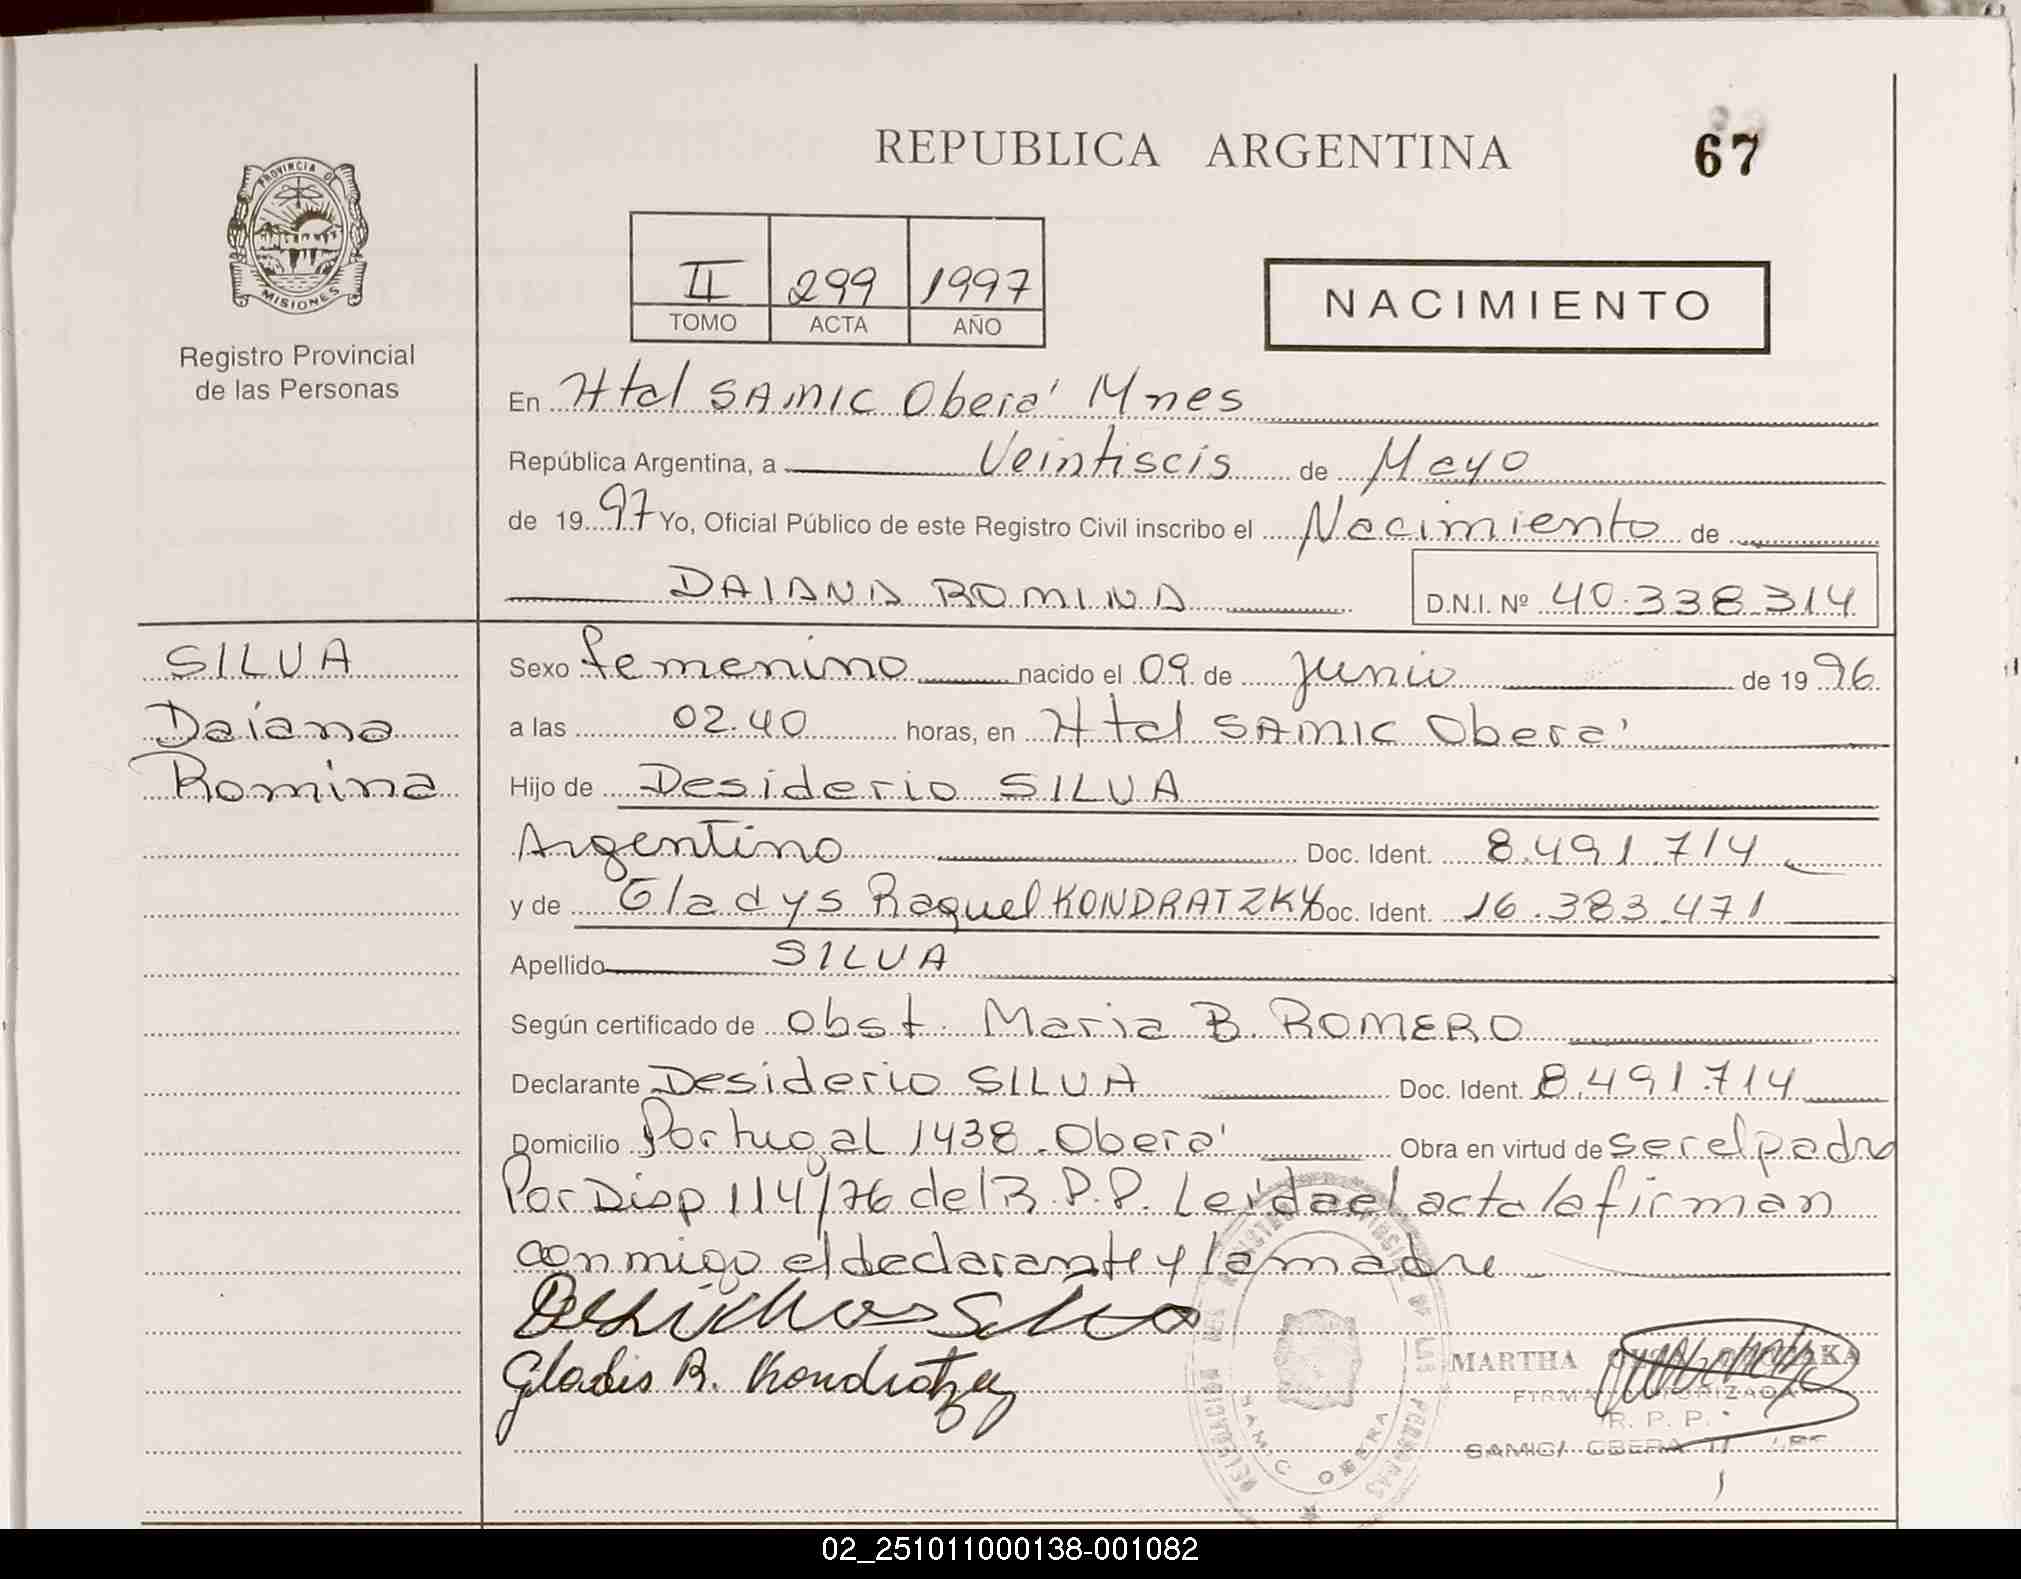 REPUBLICA ARGENTINA
67
PROVINCIA DE MISIONES
Registro Provincial
de las Personas
II 299 1997
TOMO ACTA AÑO
NACIMIENTO
En Htal SAMIC Oberá Mnes
República Argentina, a Veintiseis de Mayo
de 1997 Yo, Oficial Público de este Registro Civil inscribo el Nacimiento de
DAIANA ROMINA D.N.I. Nº 40.338.314
SILVA
Daiana
Romina
Sexo femenino nacido el 09 de Junio de 1996
a las 02.40 horas, en Htal SAMIC Oberá
Hijo de Desiderio SILVA
Argentino Doc. Ident. 8.491.714
y de Gladys Raquel KONDRATZKY Doc. Ident. 16.383.471
Apellido SILVA
Según certificado de Obst. Maria B. ROMERO
Declarante Desiderio SILVA Doc. Ident. 8.491.714
Domicilio Portugal 1438. Oberá Obra en virtud de ser el padre
Por Disp 114/76 del R.P.P. Leida el acta la firman
conmigo el declarante y la madre
Gladis R. Kondratzky
MARTHA
FIRMA AUTORIZADA
R. P. P.
SAMIC/ OBERA
SAMIC OBERA
02_251011000138-001082